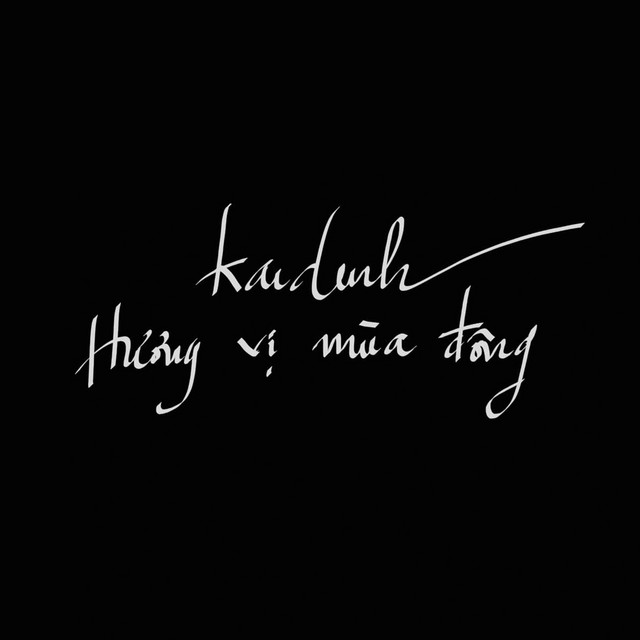 kaidinh
Hương vị mùa đông